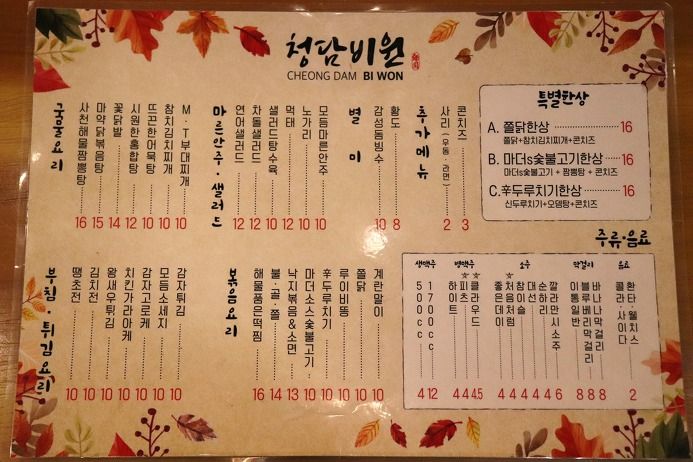 청담비원
CHEONG DAM BI WON
국물요리
M·T부대찌개 10
참치김치찌개 10
뜨끈한어묵탕 10
시원한홍합탕 12
꽃닭발 14
마약닭볶음탕 15
사천해물짬뽕탕 16
마른안주·샐러드
모듬마른안주 10
노가리 10
먹태 12
샐러드탕수육 10
차돌샐러드 12
연어샐러드 12
별미
황도 8
감성돔빙수 10
추가메뉴
콘치즈 3
사리(우동·라면) 2
특별한상
A. 쫄닭한상 16
쫄닭+참치김치찌개+콘치즈
B. 마더s숯불고기한상 16
마더s숯불고기 + 짬뽕탕 + 콘치즈
C.辛두루치기한상 16
신두루치기+오뎅탕+콘치즈
부침·튀김요리
감자튀김 10
모듬소세지 10
감자고로케 10
치킨가라아케 10
왕새우튀김 10
김치전 10
땡초전 10
볶음요리
계란말이 10
쫄닭 10
루이비똥 10
辛두루치기 10
마더소스숯불고기 10
낙지볶음&소면 13
불·골·쫄 14
해물품은떡찜 16
주류·음료
생맥주
500cc 4
1700cc 12
병맥주
하이트 4
☆피츠 4
☆클라우드 4.5
소주
좋은데이 4
☆처음처럼 4
참 4
대선 4
순하리 4
깔라만시소주 6
막걸리
이통일반 8
블루베리막걸리 8
바나나막걸리 8
음료
콜라·사이다
환타·웰치스 2